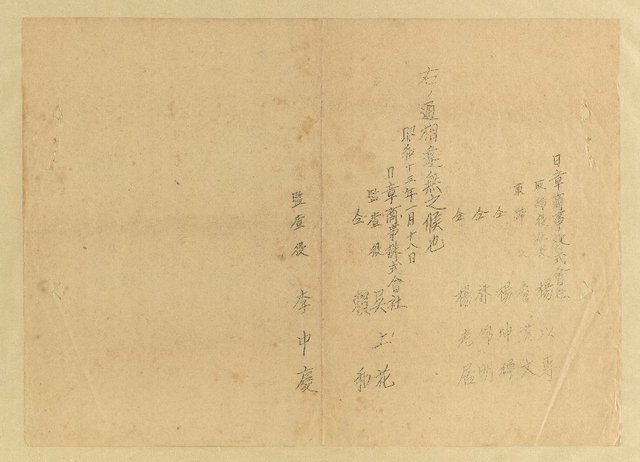 日章商事株式會社
取締役 楊以專
取締役 詹 文
仝 楊坤
仝 明
仝 楊老居
右ノ通相違無之候也
昭和十三年一月十八日
日章商事株式會社
監査役 吳 花
仝 和
監査役 李中慶